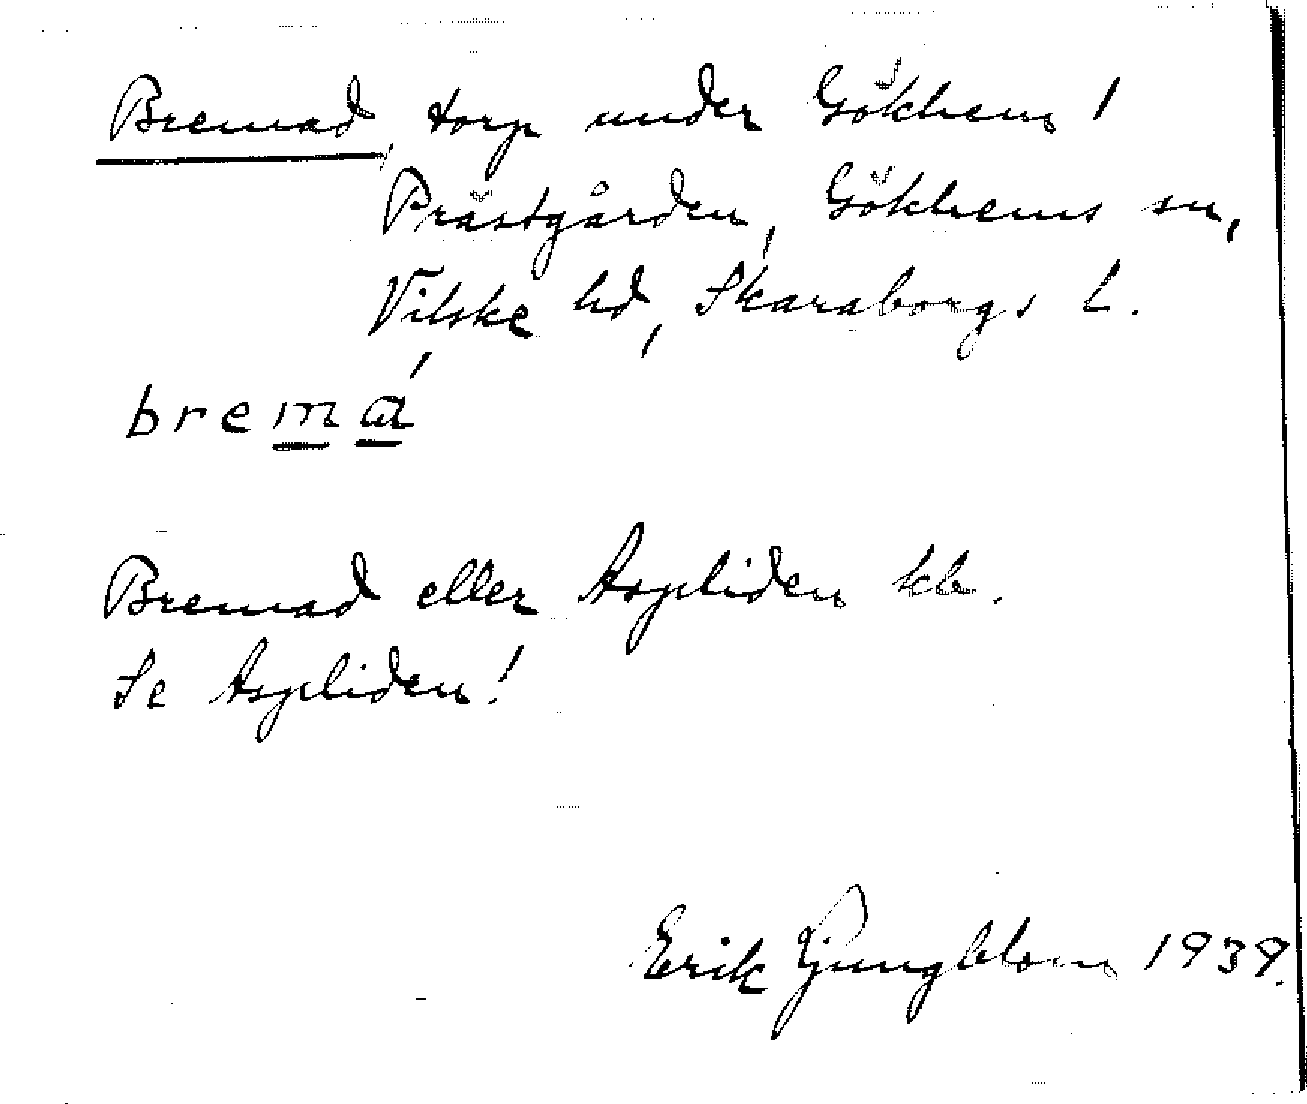 Bremad, torp under Gökhems
Prästgården, Gökhems sn,
Vilske hd, Skaraborgs l.
bremá
Bremad eller Aspliden kb.
Se Aspliden!
Erik Ljungblom 1939.